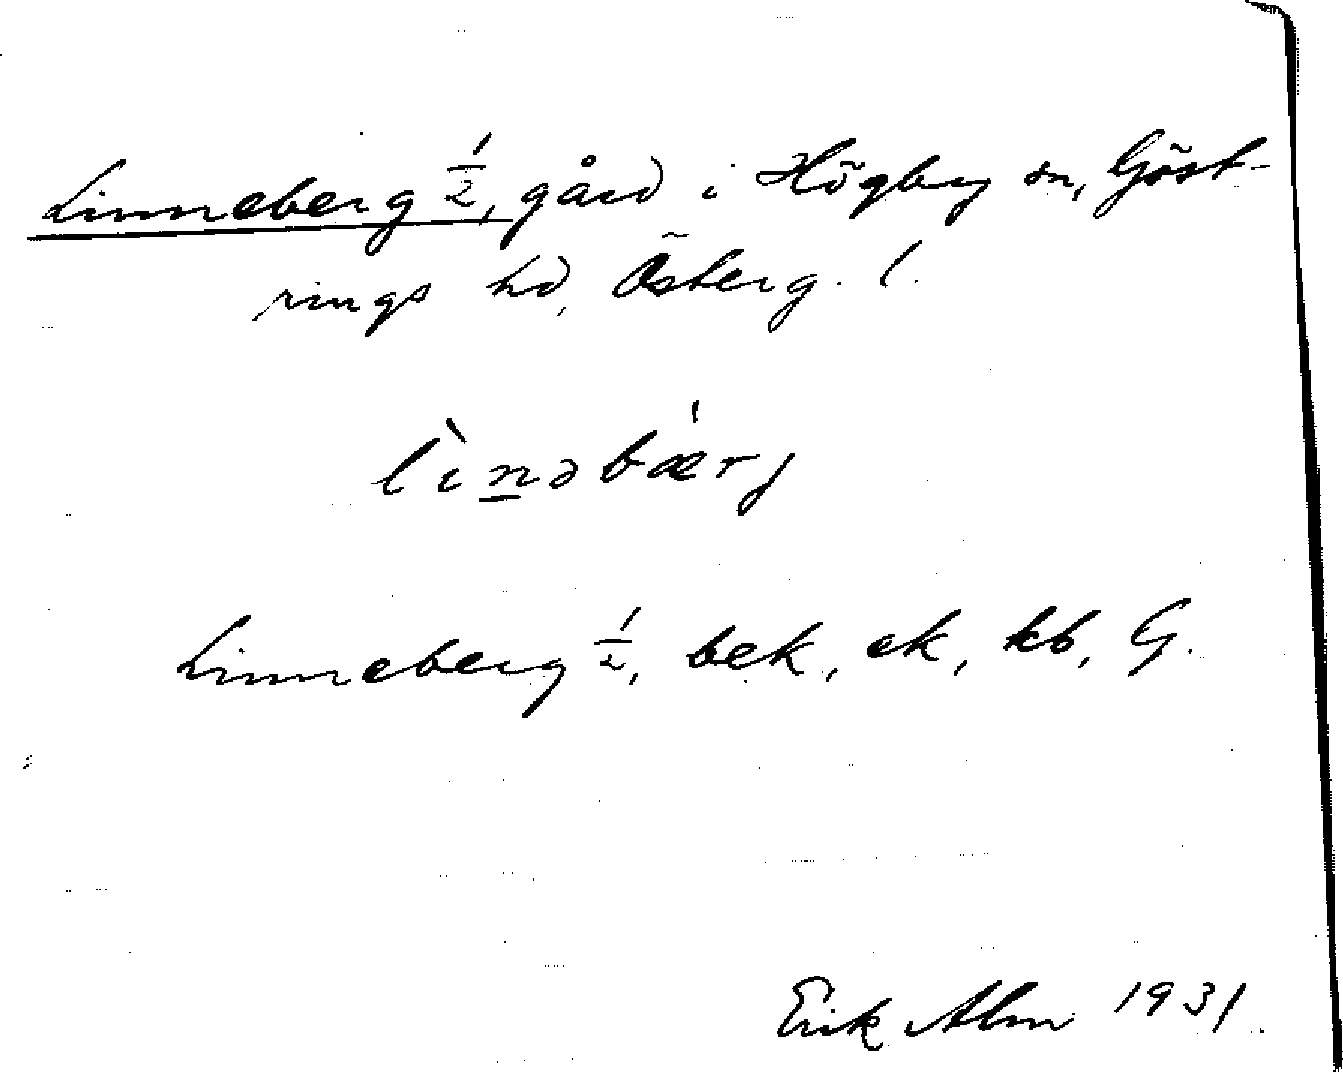 Linneberg 1/2, gård i Högby sn, Göst-
rings hd, Österg. l.
lìnəbæ'rj
Linneberg 1/2, bek, ek, kb, G.
Erik Alm 1931.